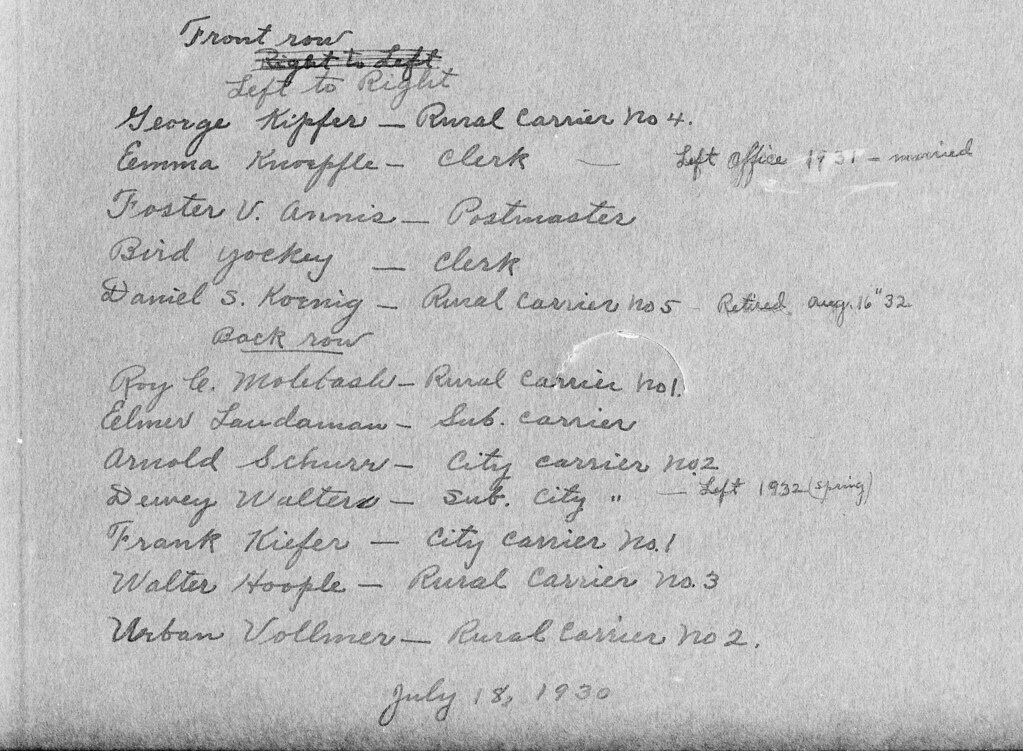 Front row
Right to Left
Left to Right
George Kipfer — Rural Carrier No 4.
Emma Knoepfle — Clerk — Left Office 1931 — married
Foster V. Annis — Postmaster
Bird Yockey — Clerk
Daniel S. Koenig — Rural Carrier No 5 - Retired Aug. 16" 32
Back row
Roy C. — Rural Carrier No 1.
Elmer Laudaman — Sub. Carrier
Arnold Schurr — City Carrier No. 2
Dewey Walters — Sub. City " — Left 1932 (Spring)
Frank Kiefer — City Carrier No. 1
Walter Hoople — Rural Carrier No. 3
Urban Vollmer — Rural Carrier No 2.
July 18, 1930